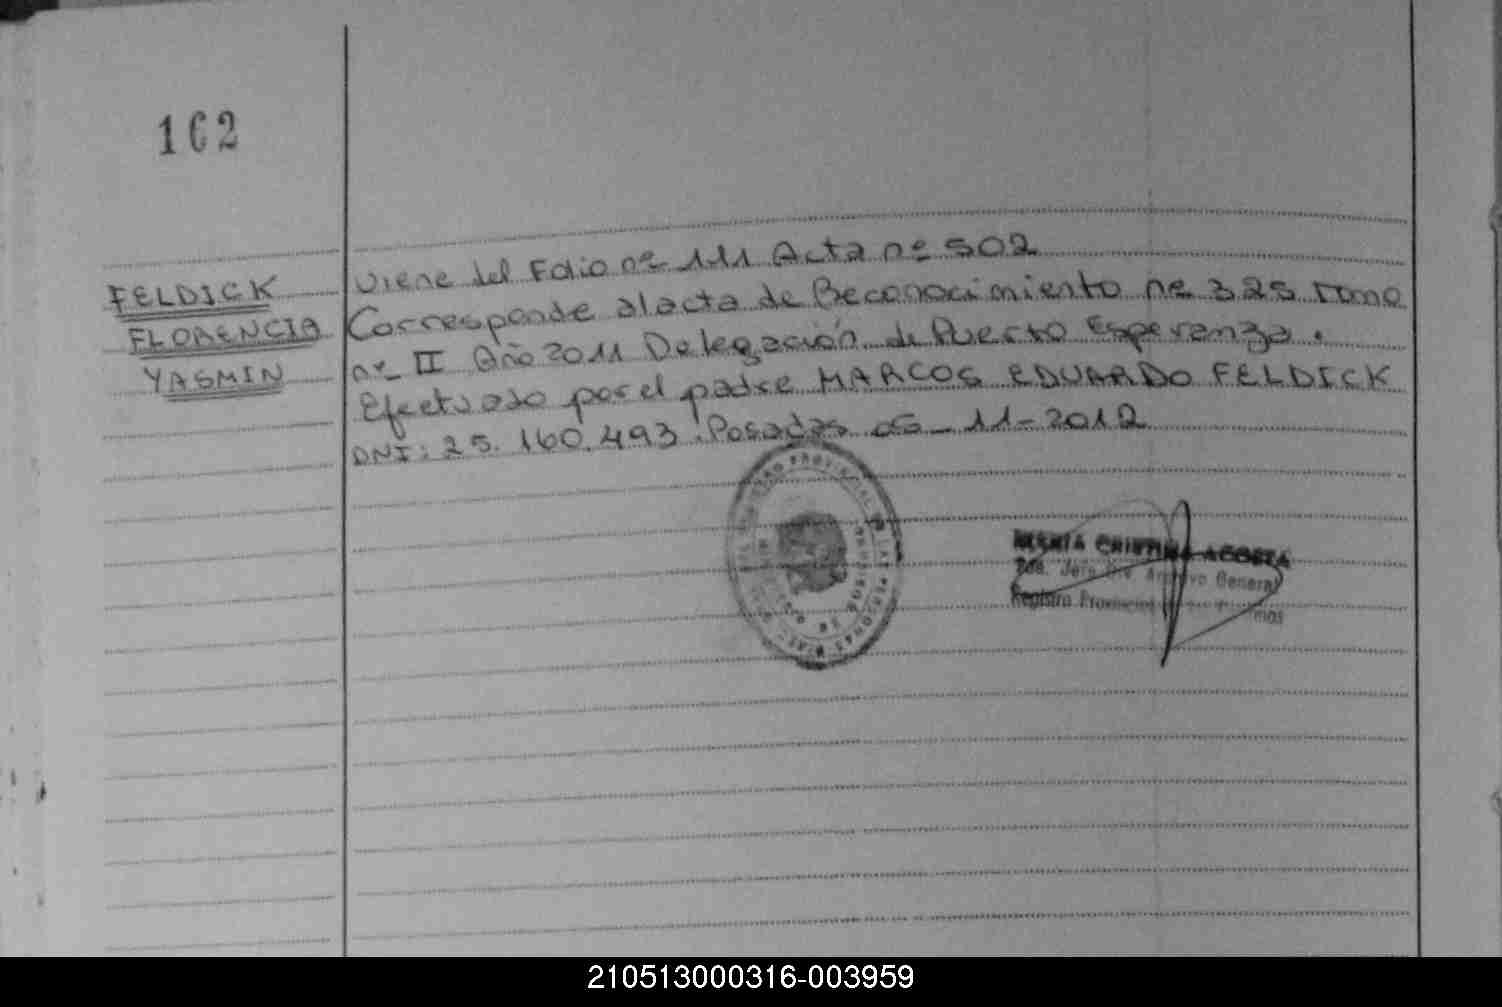 162
FELDICK
FLORENCIA
YASMIN
Viene del Folio nº 111 Acta nº 502
Corresponde al acta de Reconocimiento nº 325 Tomo
nº II Año 2011 Delegación de Puerto Esperanza.
Efectuado por el padre MARCOS EDUARDO FELDICK
DNI: 25.160.493. Posadas 06-11-2012
REGISTRO PROVINCIAL DE LAS PERSONAS
MARIA CRISTINA ACOSTA
Jefe Div. Archivo General
Registro Provincial
210513000316-003959